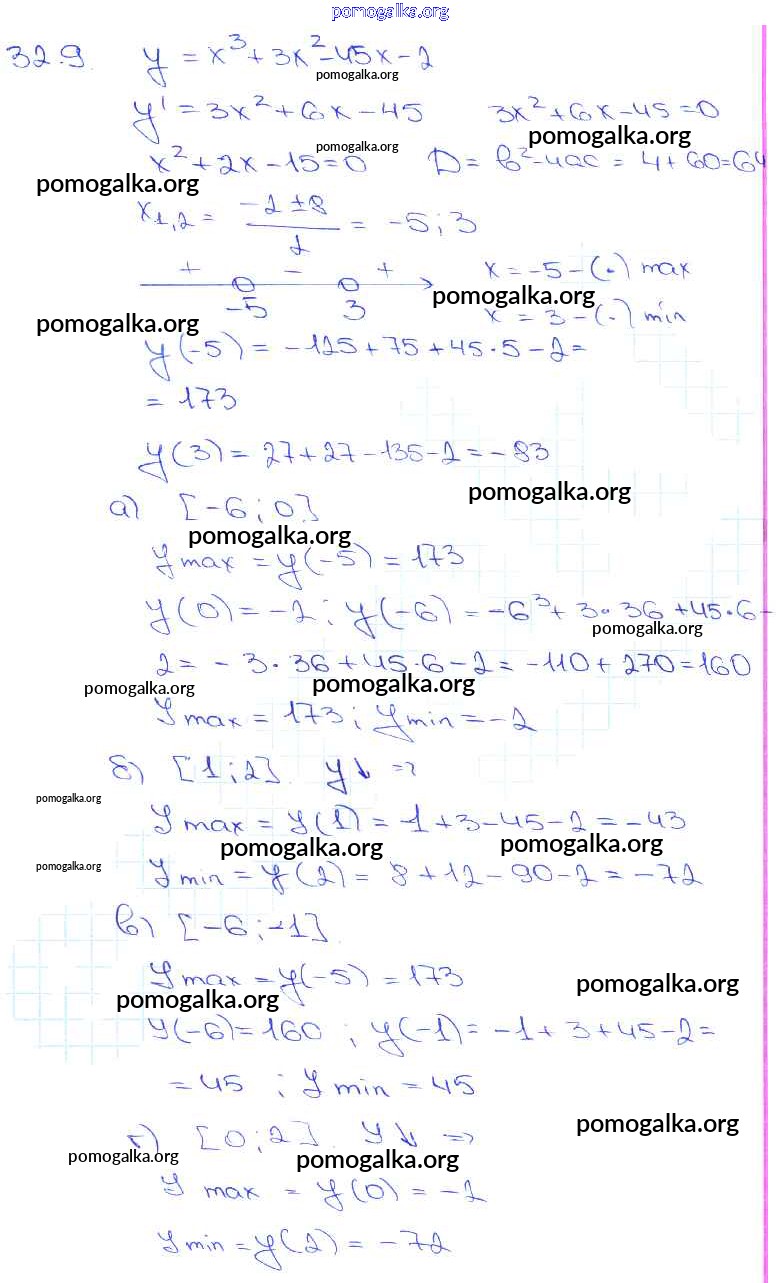 pomogalka.org
32.9. y = x³ + 3x² - 45x - 2
pomogalka.org
y' = 3x² + 6x - 45 3x² + 6x - 45 = 0
pomogalka.org pomogalka.org
x² + 2x - 15 = 0 D = b² - 4ac = 4 + 60 = 64
pomogalka.org
x₁,₂ = (-2 ± 8)/2 = -5; 3
+ - + x = -5 - (·) max
pomogalka.org
-5 3 x = 3 - (·) min
pomogalka.org
y(-5) = -125 + 75 + 45·5 - 2 =
= 173
y(3) = 27 + 27 - 135 - 2 = -83
pomogalka.org
а) [-6; 0]
pomogalka.org
y max = y(-5) = 173
y(0) = -2; y(-6) = -6³ + 3·36 + 45·6 -
pomogalka.org
2 = -3·36 + 45·6 - 2 = -110 + 270 = 160
pomogalka.org pomogalka.org
y max = 173; y min = -2
б) [1; 2] y↓ =>
pomogalka.org
y max = y(1) = 1 + 3 - 45 - 2 = -43
pomogalka.org pomogalka.org
pomogalka.org
y min = y(2) = 8 + 12 - 90 - 2 = -72
в) [-6; -1]
y max = y(-5) = 173
pomogalka.org pomogalka.org
y(-6) = 160 ; y(-1) = -1 + 3 + 45 - 2 =
= 45 ; y min = 45
pomogalka.org
г) [0; 2] y↓ =>
pomogalka.org pomogalka.org
y max = y(0) = -2
y min = y(2) = -72